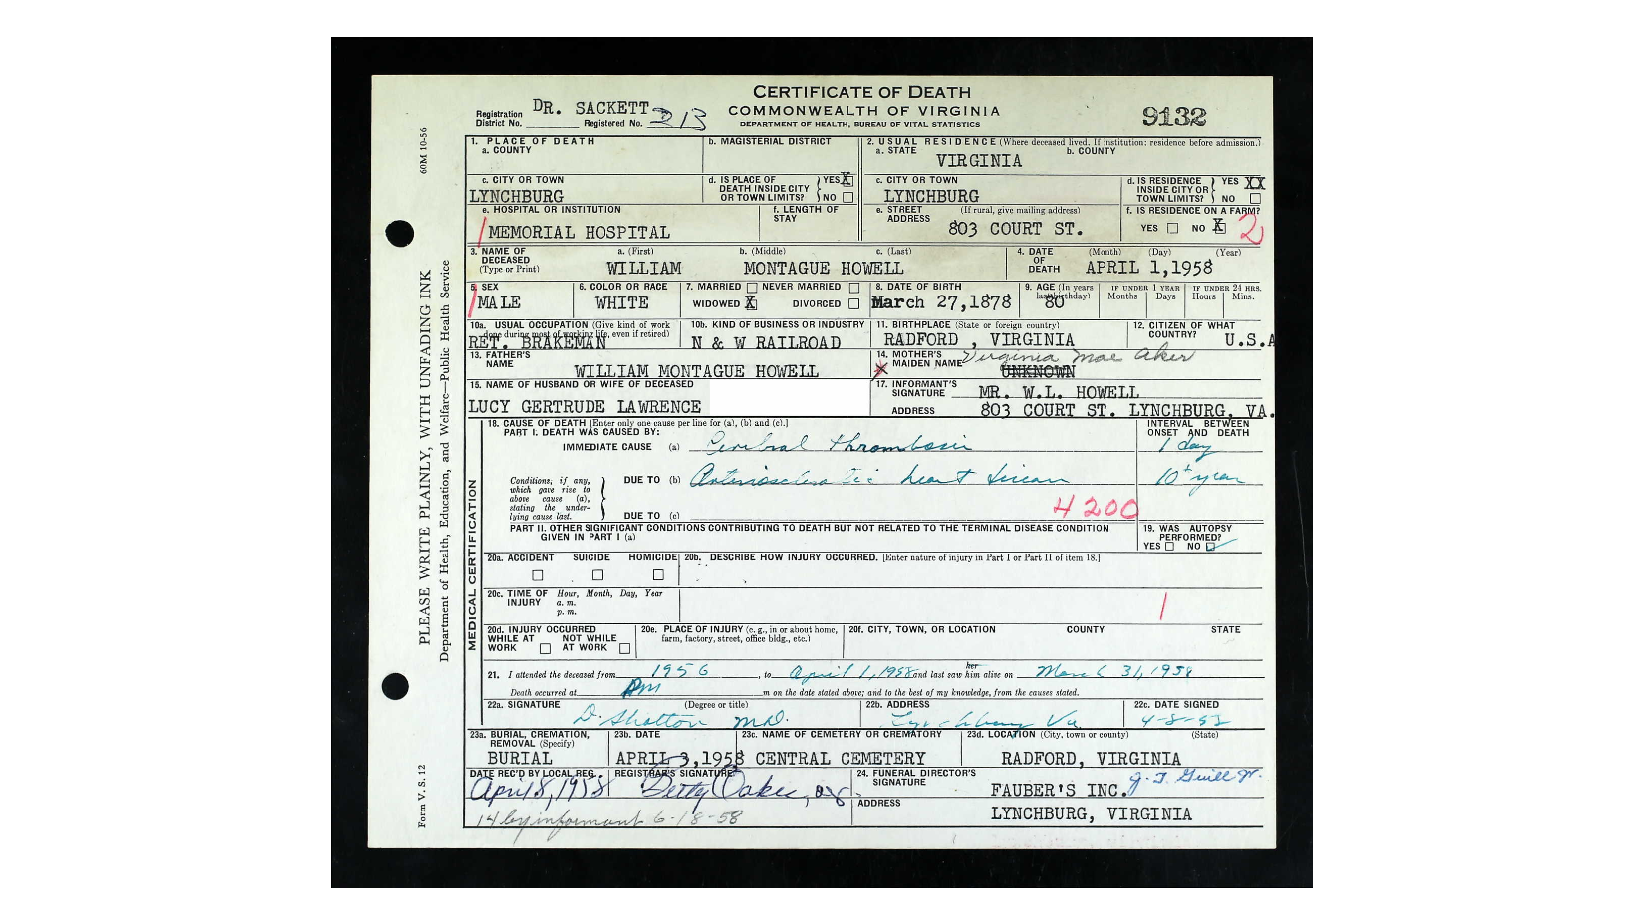 CERTIFICATE OF DEATH
COMMONWEALTH OF VIRGINIA
DEPARTMENT OF HEALTH, BUREAU OF VITAL STATISTICS
9132
Registration District No. DR. SACKETT Registered No. 213
60M 10-56
PLEASE WRITE PLAINLY, WITH UNFADING INK
Department of Health, Education, and Welfare—Public Health Service
Form V. S. 12
1. PLACE OF DEATH
a. COUNTY
b. MAGISTERIAL DISTRICT
2. USUAL RESIDENCE (Where deceased lived. If institution: residence before admission.)
a. STATE VIRGINIA b. COUNTY
c. CITY OR TOWN
LYNCHBURG
d. IS PLACE OF DEATH INSIDE CITY OR TOWN LIMITS? YES X NO
c. CITY OR TOWN
LYNCHBURG
d. IS RESIDENCE INSIDE CITY OR TOWN LIMITS? YES XX NO
e. HOSPITAL OR INSTITUTION
MEMORIAL HOSPITAL
f. LENGTH OF STAY
e. STREET ADDRESS (If rural, give mailing address)
803 COURT ST.
f. IS RESIDENCE ON A FARM?
YES NO X 2
3. NAME OF DECEASED (Type or Print)
a. (First) b. (Middle) c. (Last)
WILLIAM MONTAGUE HOWELL
4. DATE OF DEATH (Month) (Day) (Year)
APRIL 1,1958
5. SEX
MALE
6. COLOR OR RACE
WHITE
7. MARRIED NEVER MARRIED
WIDOWED X DIVORCED
8. DATE OF BIRTH
March 27,1878
9. AGE (In years last birthday)
80
IF UNDER 1 YEAR
Months Days
IF UNDER 24 HRS.
Hours Mins.
10a. USUAL OCCUPATION (Give kind of work done during most of working life, even if retired)
RET. BRAKEMAN
10b. KIND OF BUSINESS OR INDUSTRY
N & W RAILROAD
11. BIRTHPLACE (State or foreign country)
RADFORD , VIRGINIA
12. CITIZEN OF WHAT COUNTRY?
U.S.A
13. FATHER'S NAME
WILLIAM MONTAGUE HOWELL
14. MOTHER'S MAIDEN NAME Virginia Mae Aker
UNKNOWN
15. NAME OF HUSBAND OR WIFE OF DECEASED
LUCY GERTRUDE LAWRENCE
17. INFORMANT'S SIGNATURE MR. W.L. HOWELL
ADDRESS 803 COURT ST. LYNCHBURG, VA.
MEDICAL CERTIFICATION
18. CAUSE OF DEATH [Enter only one cause per line for (a), (b) and (c).]
PART I. DEATH WAS CAUSED BY:
IMMEDIATE CAUSE (a) Cerebral thrombosis
INTERVAL BETWEEN ONSET AND DEATH
1 day
Conditions, if any, which gave rise to above cause (a), stating the underlying cause last.
DUE TO (b) Arteriosclerotic heart disease
10+ year
DUE TO (c)
4200
PART II. OTHER SIGNIFICANT CONDITIONS CONTRIBUTING TO DEATH BUT NOT RELATED TO THE TERMINAL DISEASE CONDITION GIVEN IN PART I (a)
19. WAS AUTOPSY PERFORMED?
YES NO
20a. ACCIDENT SUICIDE HOMICIDE
20b. DESCRIBE HOW INJURY OCCURRED. [Enter nature of injury in Part I or Part II of item 18.]
20c. TIME OF INJURY Hour, Month, Day, Year
a. m.
p. m.
20d. INJURY OCCURRED
WHILE AT WORK NOT WHILE AT WORK
20e. PLACE OF INJURY (e. g., in or about home, farm, factory, street, office bldg., etc.)
20f. CITY, TOWN, OR LOCATION COUNTY STATE
21. I attended the deceased from 1956, to April 1, 1958 and last saw her him alive on March 31, 1958
Death occurred at PM m on the date stated above; and to the best of my knowledge, from the causes stated.
22a. SIGNATURE (Degree or title)
MD.
22b. ADDRESS
Lynchburg Va
22c. DATE SIGNED
4-8-58
23a. BURIAL, CREMATION, REMOVAL (Specify)
BURIAL
23b. DATE
APRIL 3,1958
23c. NAME OF CEMETERY OR CREMATORY
CENTRAL CEMETERY
23d. LOCATION (City, town or county) (State)
RADFORD, VIRGINIA
DATE REC'D BY LOCAL REG.
April 8, 1958
REGISTRAR'S SIGNATURE
Betty Oakes,
24. FUNERAL DIRECTOR'S SIGNATURE
FAUBER'S INC.
ADDRESS
LYNCHBURG, VIRGINIA
14 by informant 6-18-58